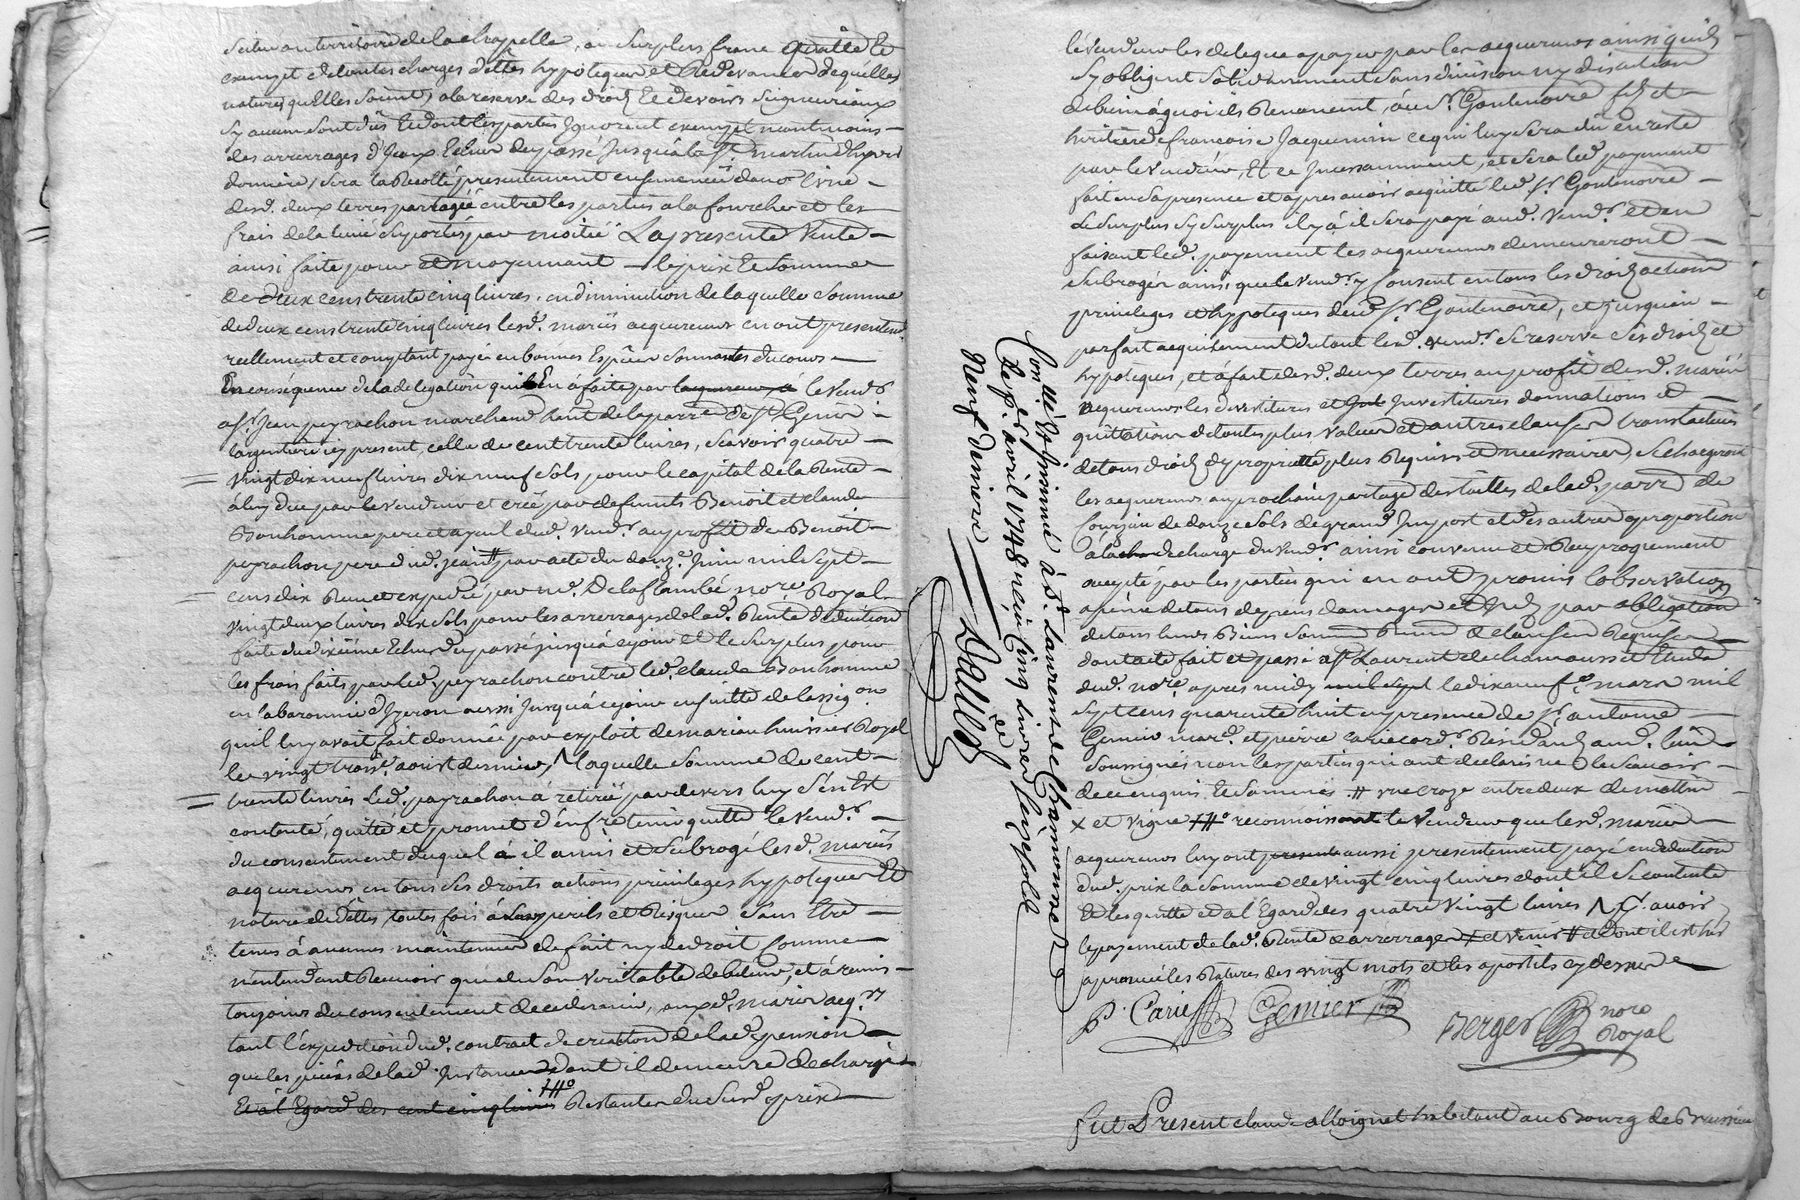 scitué au territoire de la chapelle, au surplus franc quitte Et
exempt de toutes charges dettes hypoteques et Redevances dequelles
natures quelles soint, a la reserve des droits Et devoirs seigneuriaux
sy aucuns sont dûs Et dont les parties Ignorent exempt neantmoins
des arrerages d'Jceux Echus du passé Jusqua la St. martin d'hyver
derniere, sera la Recolte presentement ensemencée dans l'une
desd. deux terres partagée entre les parties a la fourche et les
frais de la suportés par moitié La presente Vente
ainsi faite pour et moyennant le prix Et somme
de deux cens trente cinq livres. en diminution de laquelle somme
de deux cens trente cinq livres lesd. mariés acquereurs en ont presentemt
reellement et comptant payé en bonnes Espèces sonnantes du cours
En consequence de la delegation qui En a faite par le vendr
a sr. Jean peyrachon marchand hant de la parre de St Genis
largentiere icy present, celle de cent trente livres, scavoir quatre
vingt dix neuf livres dix neuf sols pour le capital de la Rente
à luy due par le vendeur et créé par defunts Benoit et claude
Bonhomme pere et ayeul dud. vendr au profit de Benoit
peyrachon pere dud. jean par acte du douze Juin mil sept
cens dix Receu et expedié par me. Delaflambé nore Royal
vingt deux livres dix sols pour les arrerages de lad. Rente deduction
faite du dixième Echus du passé jusquà ce jour et le surplus pour
les frais faits par led. peyrachon contre led. claude Bonhomme
en la baronnie d'Jzeron aussi Jusquà ce jour ensuitte de l'assigon
quil luy avoit fait donner par exploit de marion huissier Royal
le vingt trois aoust dernier, laquelle somme de cent
trente livres led. peyrachon a retiré pardevers luy s'en Est
contenté, quitté et promet d'en fre tenir quitte le vendr.
du consentement duquel il a mis et subrogé lesd. mariés
acquereurs en tous ses droits actions privileges hypoteques Et
nature de dettes toutes fois à leurs perils et Risques sans Etre
tenus à aucunes maintenues de fait ny de droit comme
n'entendant Recevoir que du son veritable debiteur, et à remis
toujours du consentement de ce dernier, auxd. mariés acqrs
tant l'expedition dud. contract de creation de lad. pension
que les pieces de lad. Jnstance dont il demeure dechargé
Et a l'Egard des cent cinq livres Restantes du susd. prix
le vendeur les delegue a payer par les acquereurs ainsi quils
sy obligent solidairement sans division ny discution
de biens à quoi ils Renoncent, au sr. Goutenoire fils et
heritier de françoise Jacquemin ce qui luy sera dû en reste
par le vendeur, Et ce Jncessamment, et sera led. payement
fait en sa presence et apres avoir acquitté led. sr. Goutenoire
le surplus sy surplus il y à il sera payé aud. vendr. et en
faisant led. payement les acquereurs demeureront
subrogés ainsi que le vendr. y consent en tous les droits actions
privileges et hypoteques dud. sr. Goutenoire, et jusquau
parfait acquitement du tout led. vendr. se reserve ses droits et
hypoteques, et a fait desd. deux terres au profit desd. mariés
acquereurs les devestitures et Jnvestitures donnations et
quittations de toutes plus values et autres clauses translatives
de tous droits de proprietté plus Requises et necessaires, se chargeront
les acquereurs au prochain partage des tailles de lad. parre de
Courzieu de douze sols de grand Jmpost et des autres a proportion
à la decharge du vendr. ainsi convenu et Reciproquement
accepté par les parties qui en ont promis l'observation
a peine de tous depens domages et Jnts par obligation
de tous leurs Biens soumis Renon. et clauses Requises
dont acte fait et passé a St Laurent de chamousset Etude
dud. nore apres midy mil sept le dixneuf mars mil
sept cens quarente huit en presence de sr. antoine
Gemier marc. et pierre carie cord. Residants aud. lieu
soussignés non les parties qui ont declarés ne le scavoir
de ce enquis Et sommés # une croze entre deux de mattin
x et vigne reconnoissant le vendeur que lesd. mariés
acquereurs luy ont aussi presentement payé en deduction
dud. prix la somme de vingt cinq livres dont il se contente
Et les quitte et a l'Egard des quatre vingt livres avoir
le payement de lad. Rente et arrerages
aprouvé les Ratures des vingt mots et les apostils cy dessus
P. Carie Gemier Berger nore
Royal
Con. &c. Et Jnsinué à St. Laurent de Chamousset
Le 1er avril 1748 reçu Cinq livres seize sols
Neuf deniers
fut Present claude alloignet habitant au Bourg de Brussieu